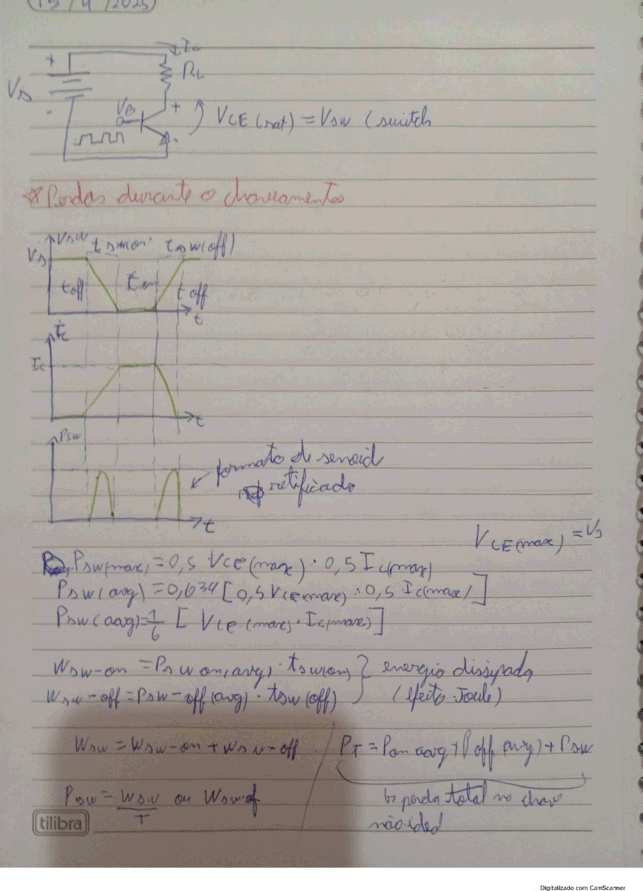 (15/4/2025)
+
Ic
RL
Vs
VB
+
-
-
VCE(sat) = Vsw (switch
* Perdas durante o chaveamento
Vsw
tsw(on)
tsw(off)
Vs
toff
ton
toff
t
Ic
Ic
t
Psw
formato de senoid
retificado
t
VCE(max) = Vs
Psw(max) = 0,5 VCE(max) · 0,5 Ic(max)
Psw(avg) = 0,634 [0,5 VCE(max) · 0,5 Ic(max)]
Psw(avg) = 1/6 [VCE(max) · Ic(max)]
Wsw-on = Psw on(avg) · tsw(on) } energia dissipada
Wsw-off = Psw-off(avg) · tsw(off) (efeito Joule)
Wsw = Wsw-on + Wsw-off
PT = Pon avg + Poff (avg) + Psw
Psw = Wsw/T ou Wsw·f
↳ perda total na chave
não ideal
tilibra
Digitalizado com CamScanner